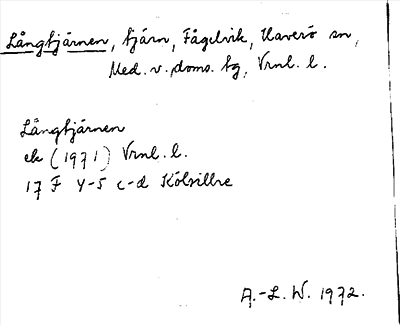 Långtjärnen, tjärn, Fågelvik, Haverö sn,
Med. v. doms. tg, Vrnl. l.
Långtjärnen
ek (1971) Vrnl. l.
17 F 4-5 c-d Kölsillre
A.-L. W. 1972.